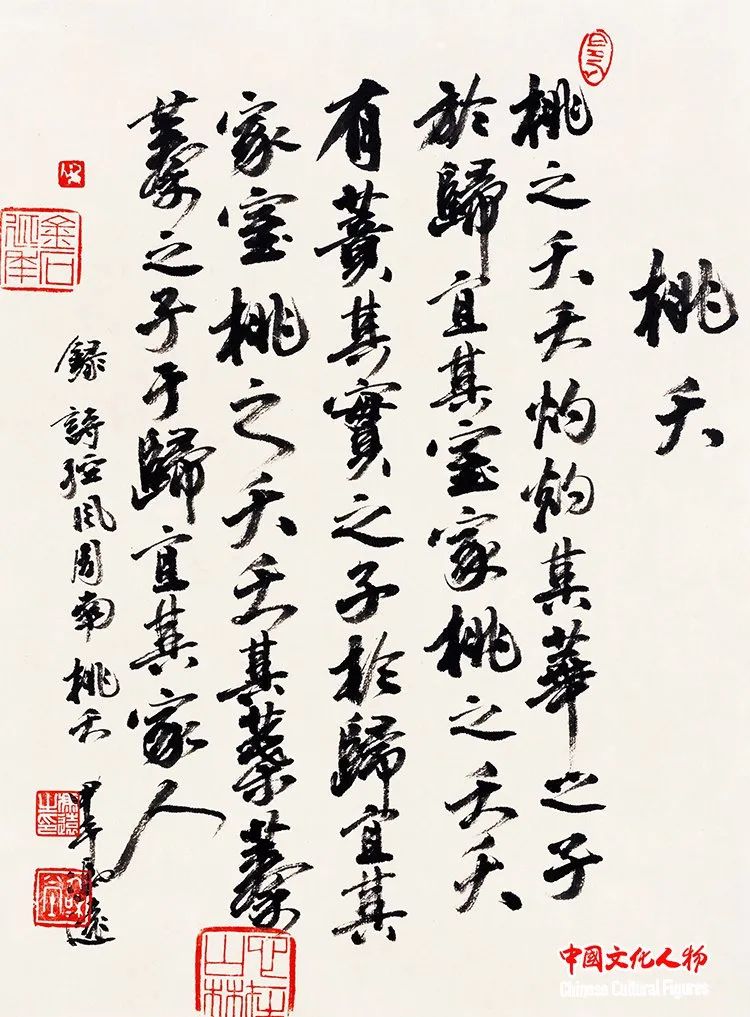 桃夭
桃之夭夭灼灼其華之子
於歸宜其室家桃之夭夭
有蕡其實之子於歸宜其
家室桃之夭夭其葉蓁
蓁之子于歸宜其家人
録詩經風周南桃夭
甲辰 遠
金石延年
心在山林
中國文化人物
Chinese Cultural Figures